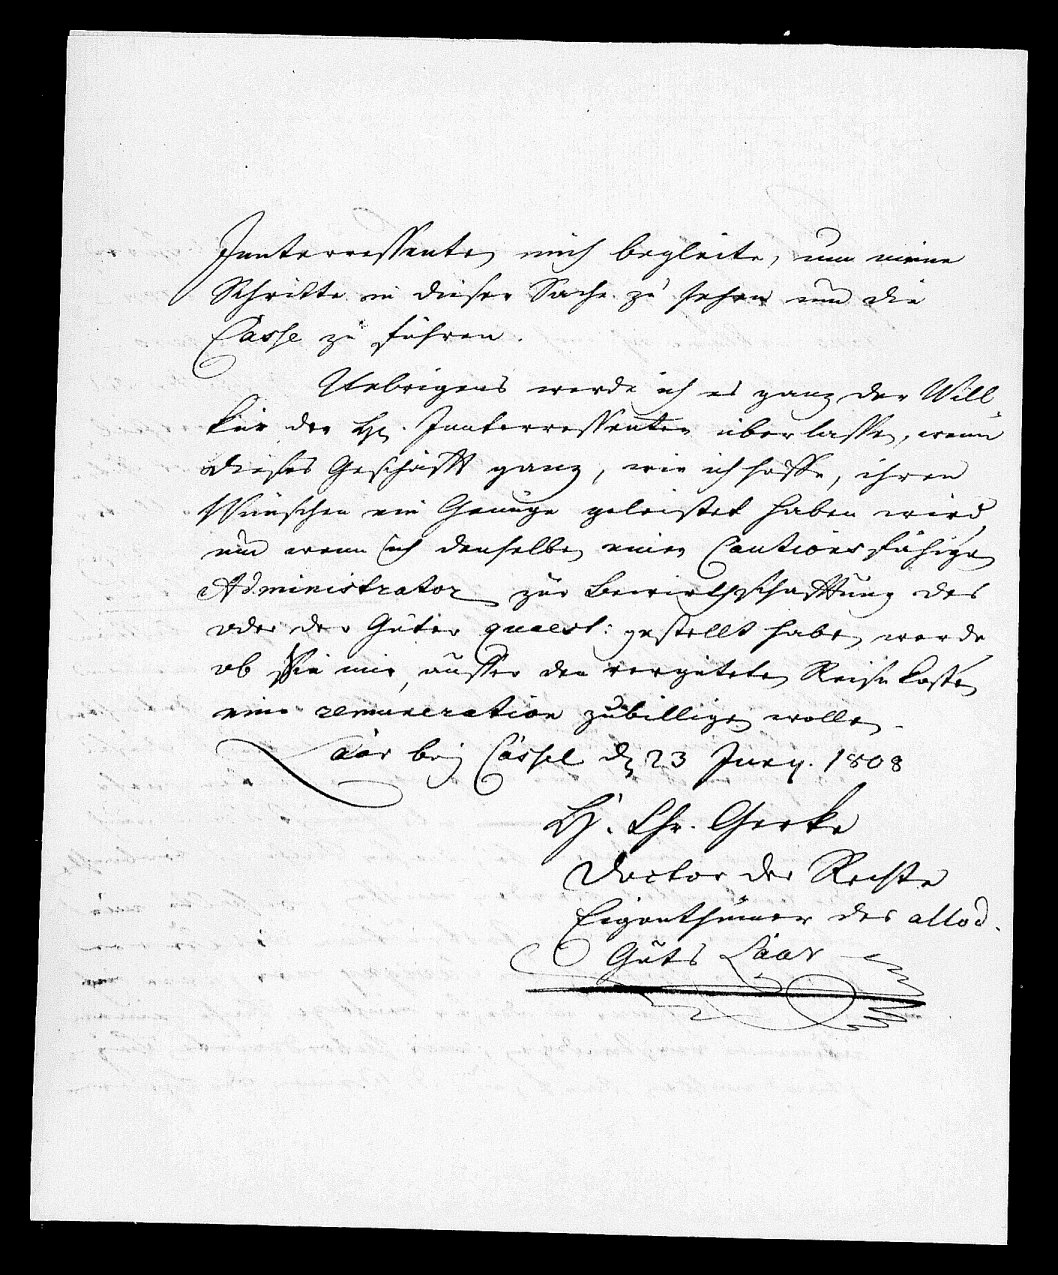 Innterressenten mich begleite, um meine
Schritte in dieser Sache zu sehen und die
Casse zu führen.
Uebrigens werde ich es ganz der Will
kür der H. Innterressenten überlassen, wenn
dieses Geschäfft ganz, wie ich hoffe, ihren
Wünschen ein Genüge geleistet haben wird,
und wenn ich denselben einen Cautionsfähigen
Administrator zur Bewirthschafftung des
oder der Güter quaest: gestellt haben werde,
ob Sie mir, ausser den vergüteten Reisekosten
eine remuneration zubilligen wollen.
Laar bei Cassel d 23 Juny. 1808
H. Chr. Gerke
Doctor der Rechte
Eigenthümer des allod.
Guts Laar